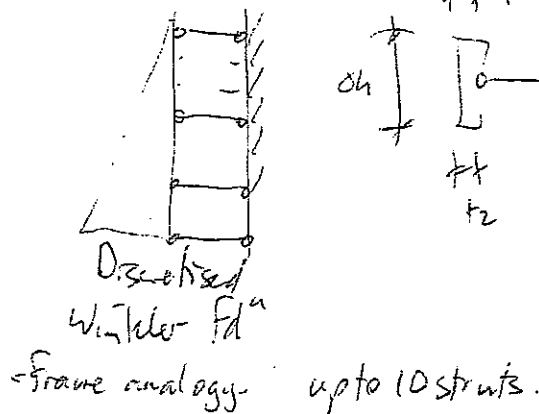 Δh
t2
Discretised
Winkler Fdⁿ
-frame analogy. upto 10 struts.